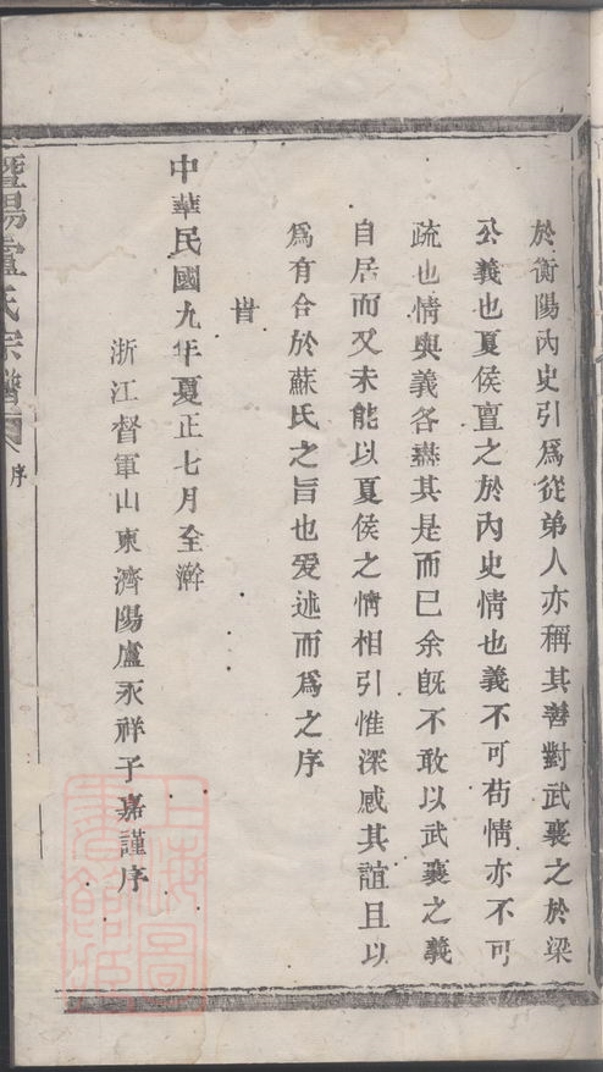 於衡陽內史引爲從弟人亦稱其善對武襄之於梁
公義也夏侯亶之於內史情也義不可苟情亦不可
疏也情與義各盡其是而已余旣不敢以武襄之義
自居而又未能以夏侯之情相引惟深感其誼且以
爲有合於蘇氏之旨也爰述而爲之序
旹
中華民國九年夏正七月全澣
浙江督軍山東濟陽盧永祥子嘉謹序
暨陽盧氏宗譜
序
上海圖
書館藏